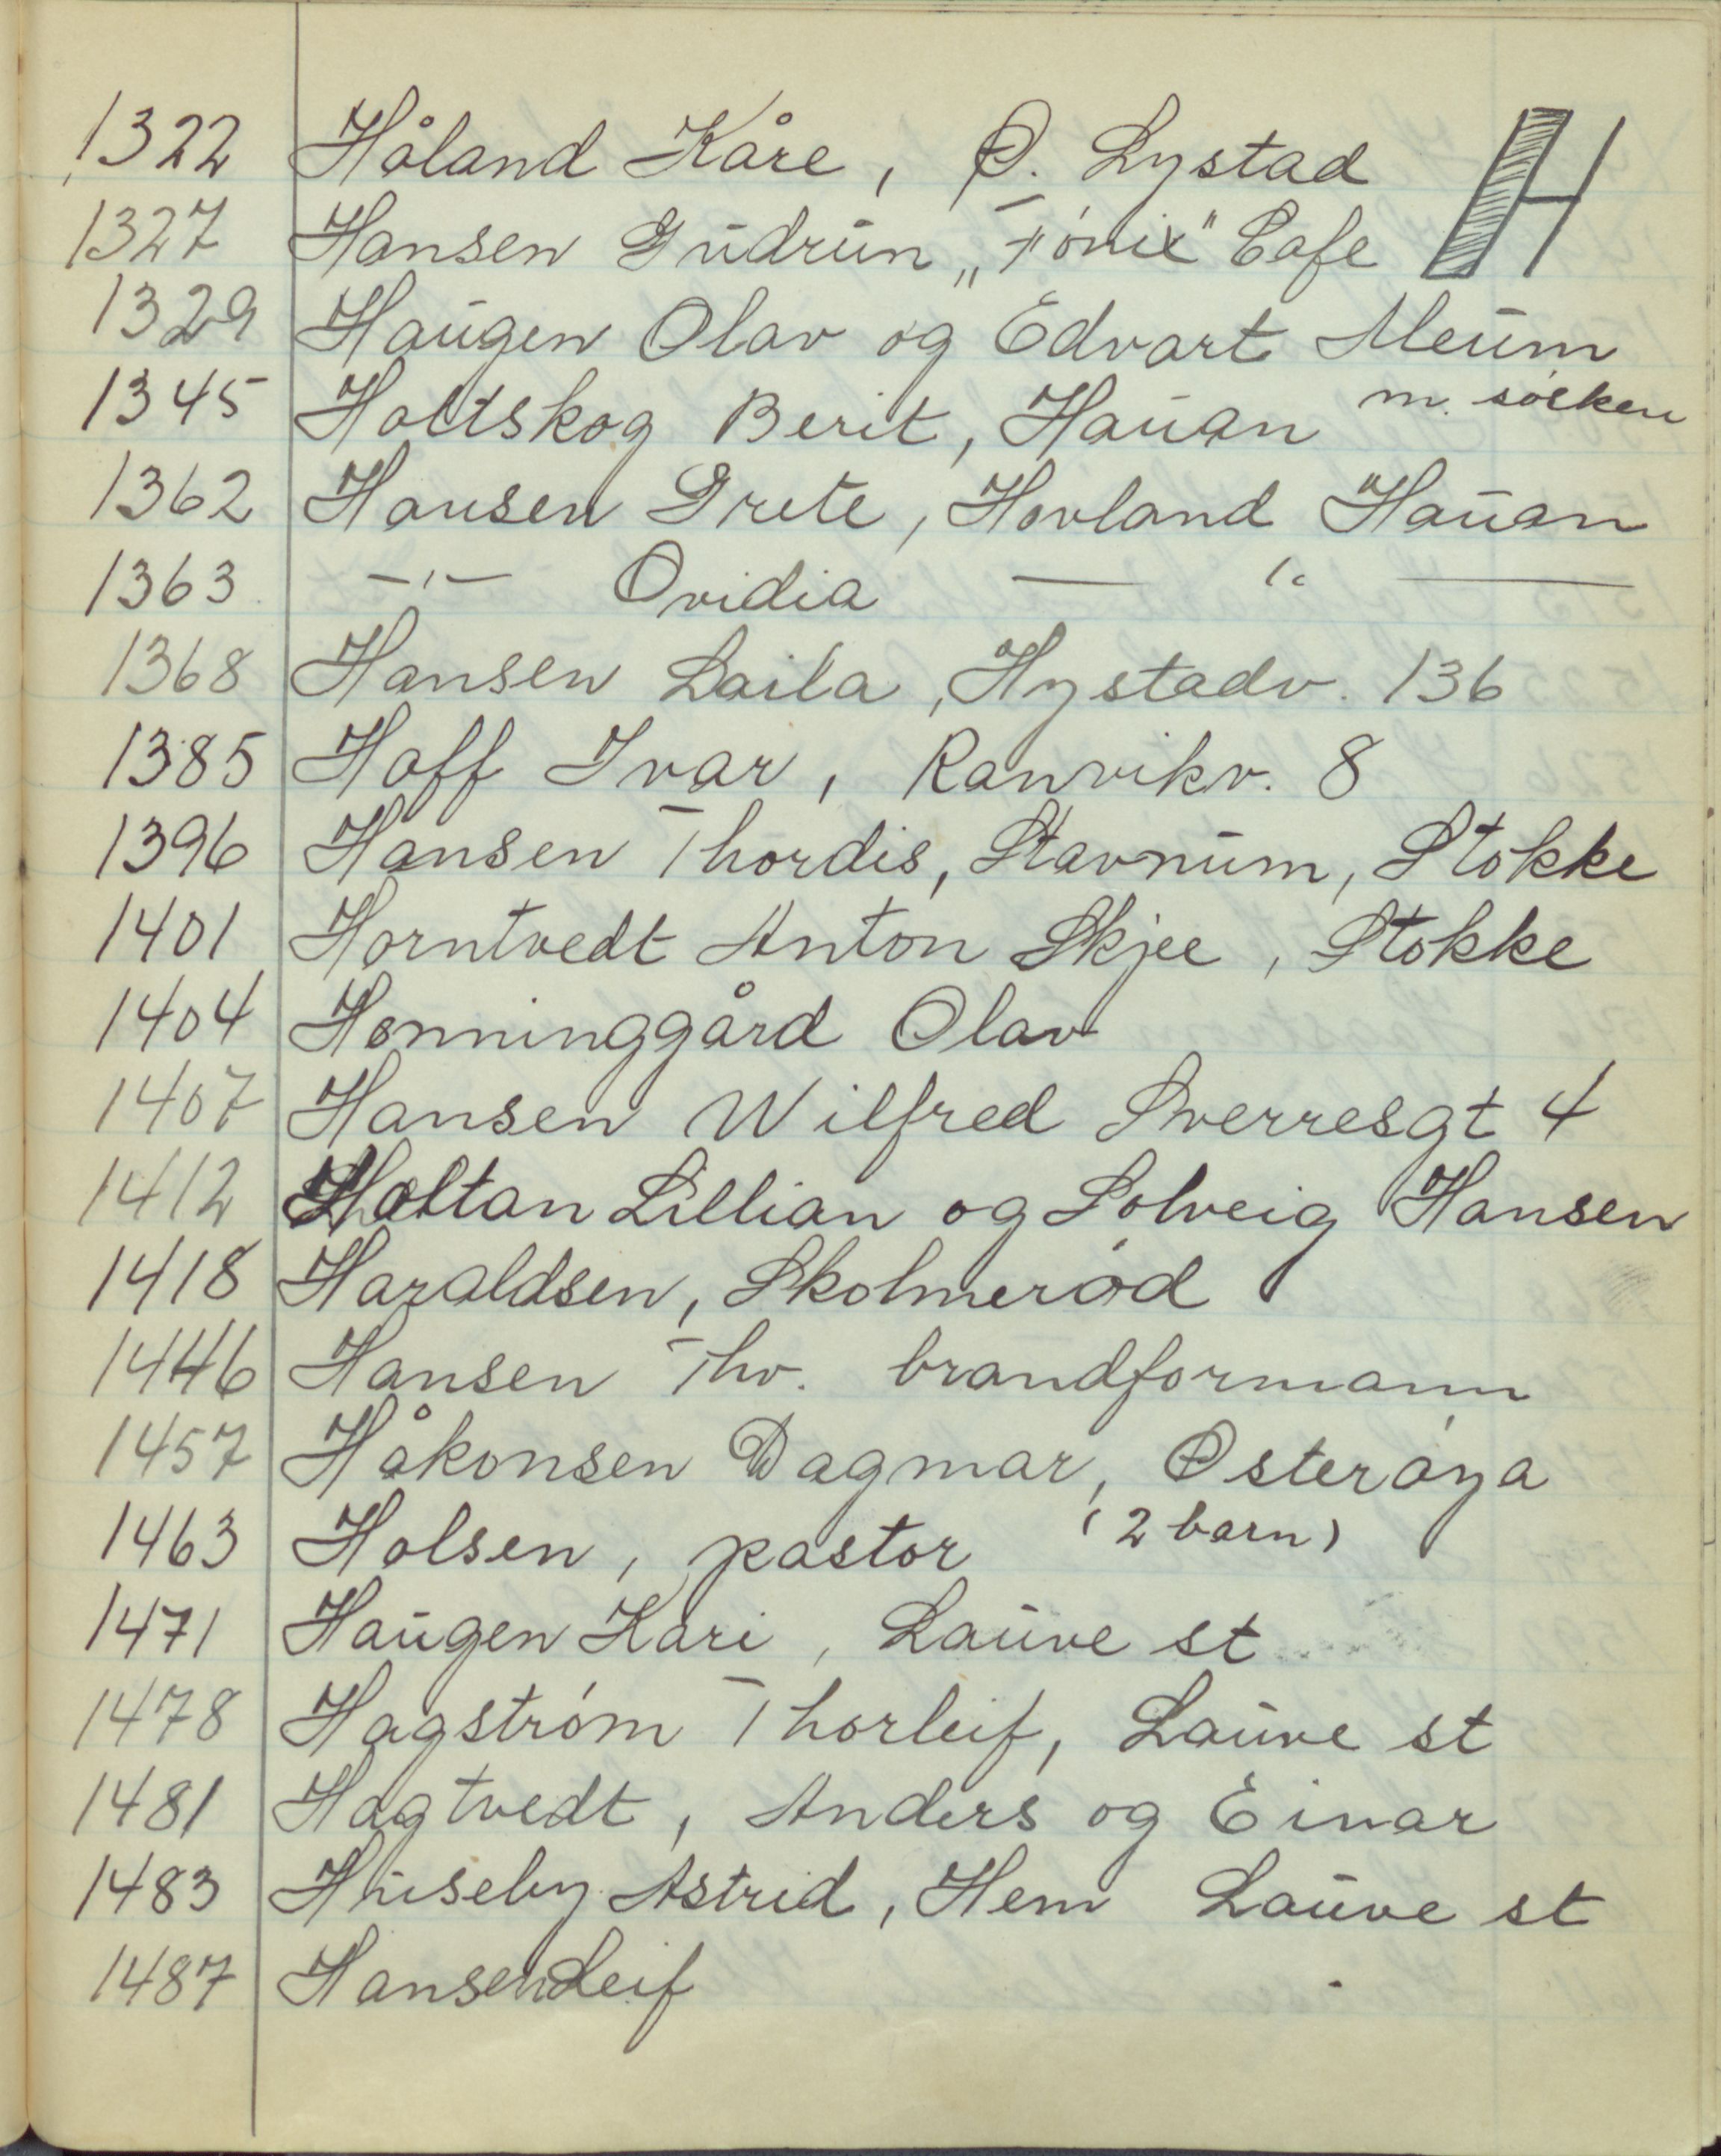 H
1322 Håland Kåre, Ø. Lystad
1327 Hansen Gudrun „Fönix" Cafe
1329 Haugen Olav og Edvart Meum
1345 Holtskog Berit, Hauan m. søsken
1362 Hansen Grete, Hovland Hauan
1363 -"- Ovidia — " —
1368 Hansen Laila, Hystadv. 136
1385 Hoff Ivar, Ranvikv. 8
1396 Hansen Thordis, Stavnum, Stokke
1401 Horntvedt Anton Skjee, Stokke
1404 Henninggård Olav
1407 Hansen Wilfred Sverresgt 4
1412 Holtan Lillian og Solveig Hansen
1418 Haraldsen, Skolmerød
1446 Hansen Thv. brandformann
1457 Håkonsen Dagmar, Østerøya
1463 Holsen, pastor (2 barn)
1471 Haugen Kari, Lauve st
1478 Hagstrøm Thorleif, Lauve st
1481 Hagtvedt, Anders og Einar
1483 Huseby Astrid, Hem Lauve st
1487 Hansen Leif